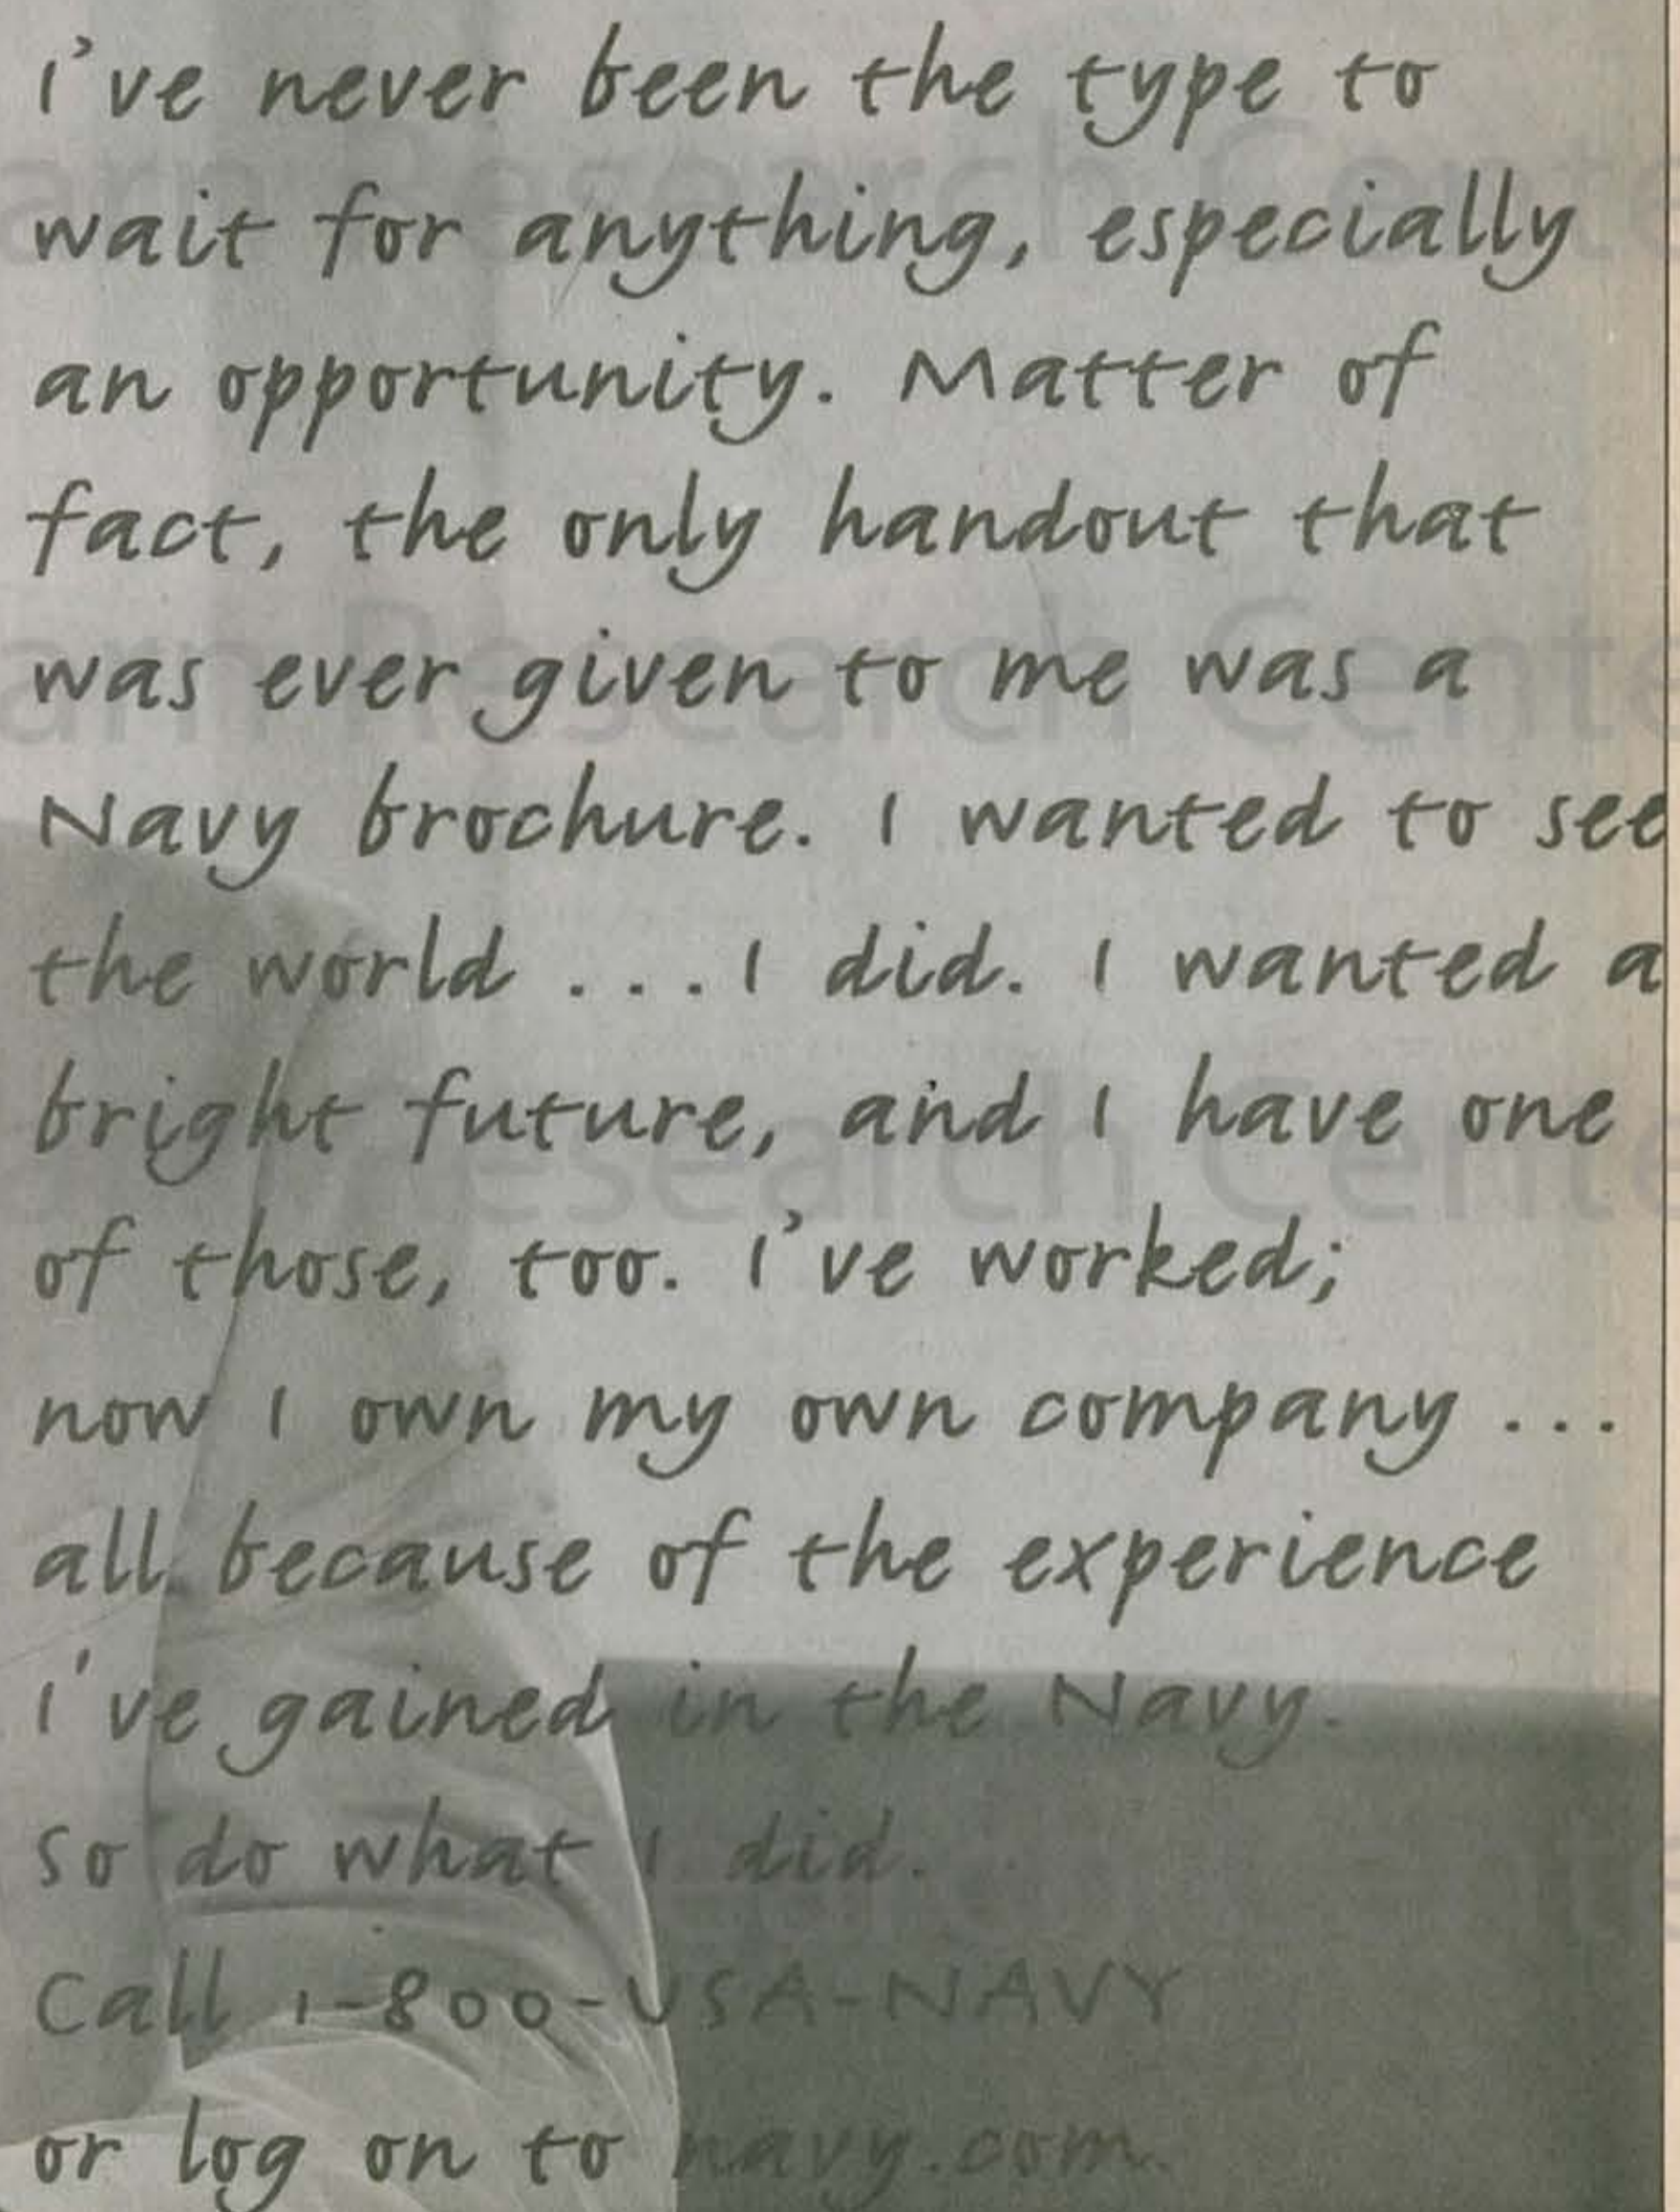 I've never been the type to
wait for anything, especially
an opportunity. Matter of
fact, the only handout that
was ever given to me was a
Navy brochure. I wanted to see
the world ... I did. I wanted a
bright future, and I have one
of those, too. I've worked;
now I own my own company ...
all because of the experience
I've gained in the Navy.
So do what I did.
Call 1-800-USA-NAVY
or log on to navy.com.
arn Research Cente
arn Research Cente
Research Cente